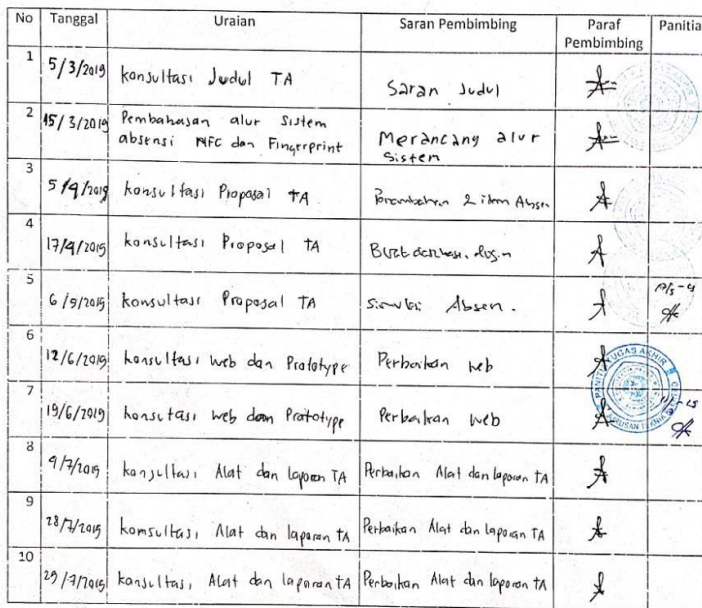 No Tanggal Uraian Saran Pembimbing Paraf Pembimbing Panitia
1 5/3/2019 konsultasi Judul TA Saran Judul
2 15/3/2019 Pembahasan alur Sistem absensi NFC dan Fingerprint Merancang alur Sistem
3 5/4/2019 konsultasi Proposal TA 2 item Absen
4 17/4/2019 konsultasi Proposal TA
5 6/5/2019 konsultasi Proposal TA Simulasi Absen.
6 12/6/2019 konsultasi web dan Prototype Perbaikan web
7 19/6/2019 konsultasi web dan Prototype Perbaikan web
8 9/7/2019 konsultasi Alat dan laporan TA Perbaikan Alat dan laporan TA
9 28/7/2019 komsultasi Alat dan laporan TA Perbaikan Alat dan laporan TA
10 29/7/2019 konsultasi Alat dan laporan TA Perbaikan Alat dan laporan TA
PANITIA TUGAS AKHIR
JURUSAN TEKNIK